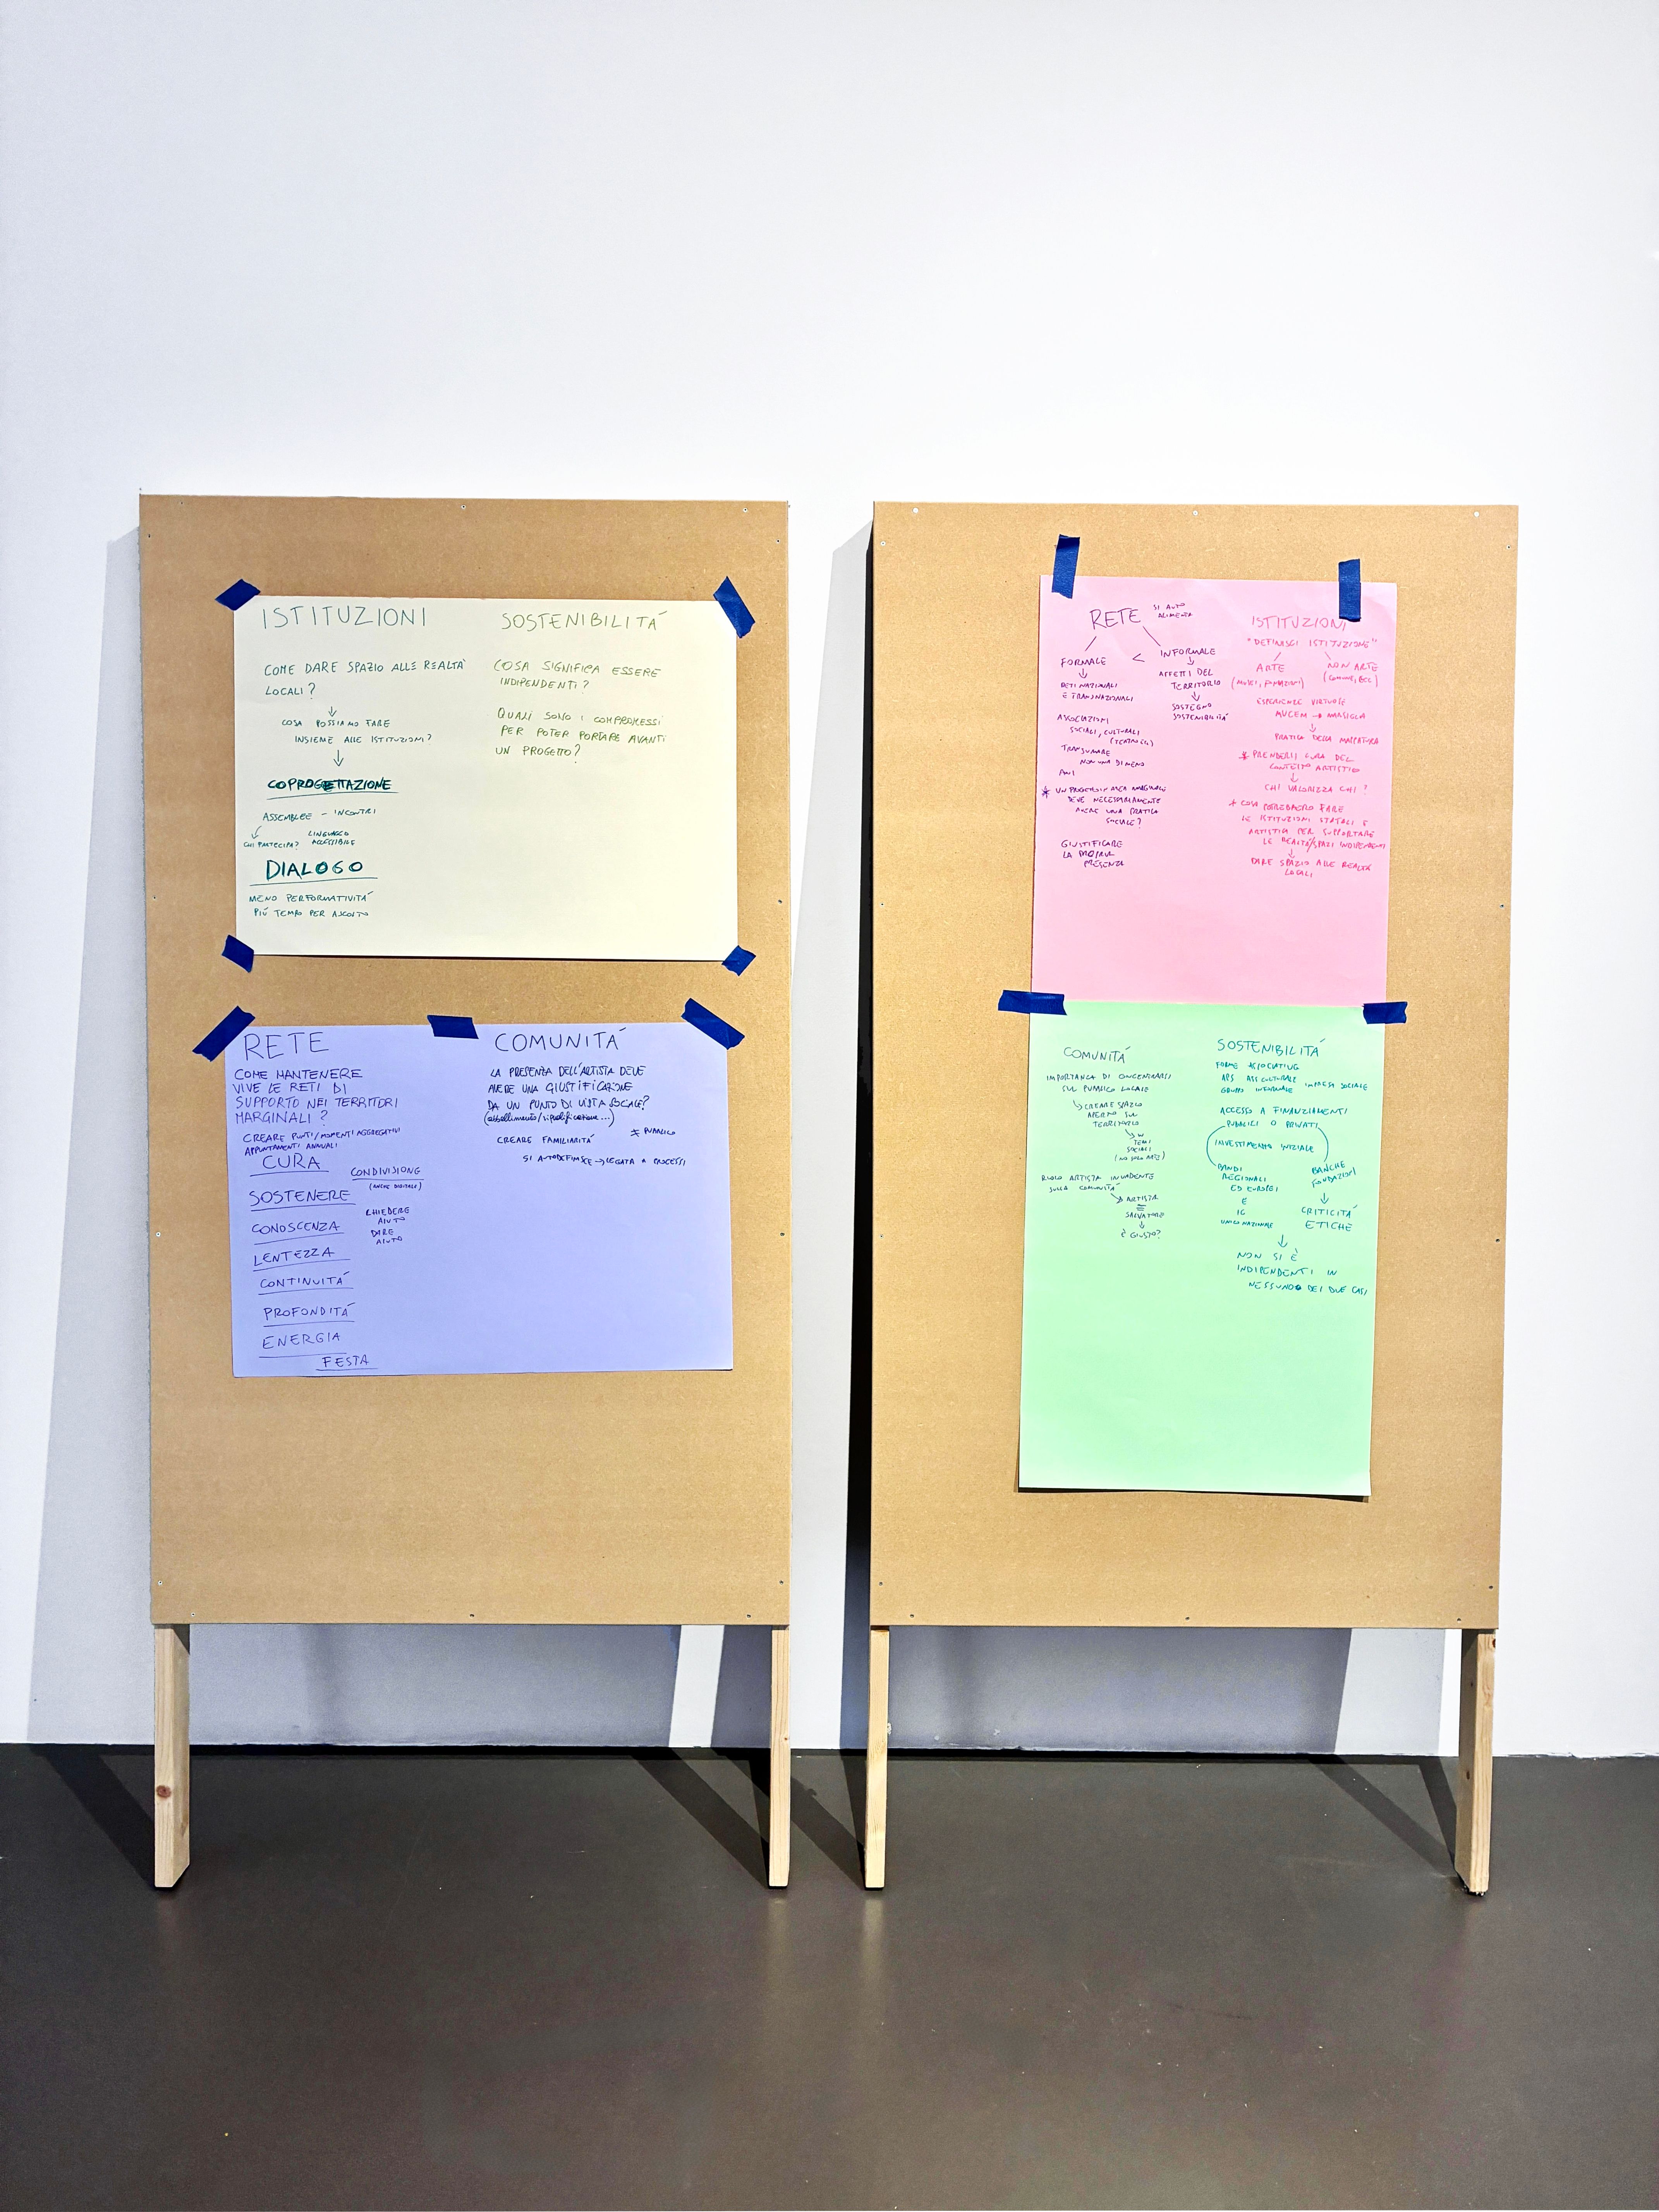 ISTITUZIONI
COME DARE SPAZIO ALLE REALTÀ
LOCALI?
↓
COSA POSSIAMO FARE
INSIEME ALLE ISTITUZIONI?
↓
COPROGETTAZIONE
ASSEMBLEE - INCONTRI
↓
CHI PARTECIPA?
LINGUAGGIO
ACCESSIBILE
DIALOGO
MENO PERFORMATIVITÀ
PIÚ TEMPO PER ASCOLTO
SOSTENIBILITÁ
COSA SIGNIFICA ESSERE
INDIPENDENTI?
QUALI SONO I COMPROMESSI
PER POTER PORTARE AVANTI
UN PROGETTO?
RETE
COME MANTENERE
VIVE LE RETI DI
SUPPORTO NEI TERRITORI
MARGINALI?
CREARE PUNTI/MOMENTI AGGREGATIVI
APPUNTAMENTI ANNUALI
CURA
CONDIVISIONE
(ANCHE DIGITALE)
SOSTENERE
CHIEDERE
AIUTO
DARE
AIUTO
CONOSCENZA
LENTEZZA
CONTINUITÁ
PROFONDITÁ
ENERGIA
FESTA
COMUNITÁ
LA PRESENZA DELL'ARTISTA DEVE
AVERE UNA GIUSTIFICAZIONE
DA UN PUNTO DI VISTA SOCIALE?
(abbellimento/riqualificazione...)
CREARE FAMILIARITÁ
≠ PUBBLICO
SI AUTODEFINISCE → LEGATA A PROCESSI
RETE
SI AUTO
ALIMENTA
FORMALE
<
INFORMALE
↓
RETI NAZIONALI
E TRANSNAZIONALI
↓
AFFETTI DEL
TERRITORIO
↓
SOSTEGNO
SOSTENIBILITÁ
ASSOCIAZIONI
SOCIALI, CULTURALI
TRANSUMARE
NON UNA DI MENO
* UN PROGETTO IN AREA MARGINALE
DEVE NECESSARIAMENTE
AVERE UNA PRATICA
SOCIALE?
GIUSTIFICARE
LA PROPRIA
PRESENZA
ISTITUZIONI
"DEFINISCI ISTITUZIONE"
ARTE
(MUSEI, FONDAZIONI)
NON ARTE
(COMUNE, ECC)
ESPERIENZE VIRTUOSE
MUCEM → MARSIGLIA
↓
PRATICA DELLA MAPPATURA
* PRENDERSI CURA DEL
CONTESTO ARTISTICO
↓
CHI VALORIZZA CHI?
* COSA POTREBBERO FARE
LE ISTITUZIONI STATALI E
ARTISTICHE PER SUPPORTARE
LE REALTÀ/SPAZI INDIPENDENTI
↓
DARE SPAZIO ALLE REALTÀ
LOCALI
COMUNITÁ
IMPORTANZA DI CONCENTRARSI
SUL PUBBLICO LOCALE
CREARE SPAZIO
APERTO SUL
TERRITORIO
↘ SU
TEMI
SOCIALI
(NO SOLO ARTE)
RUOLO ARTISTA INVADENTE
SULLA COMUNITÁ
↘ ARTISTA
=
SALVATORE
↓
È GIUSTO?
SOSTENIBILITÁ
FORME ASSOCIATIVE
APS ASS CULTURALE
GRUPPI INFORMALE IMPRESA SOCIALE
ACCESSO A FINANZIAMENTI
PUBBLICI O PRIVATI
INVESTIMENTO INIZIALE
BANDI
REGIONALI
ED EUROPEI
E
IC
UNICO NAZIONALE
BANCHE
FONDAZIONI
↓
CRITICITÁ
ETICHE
↓
NON SI È
INDIPENDENTI IN
NESSUNO DEI DUE CASI